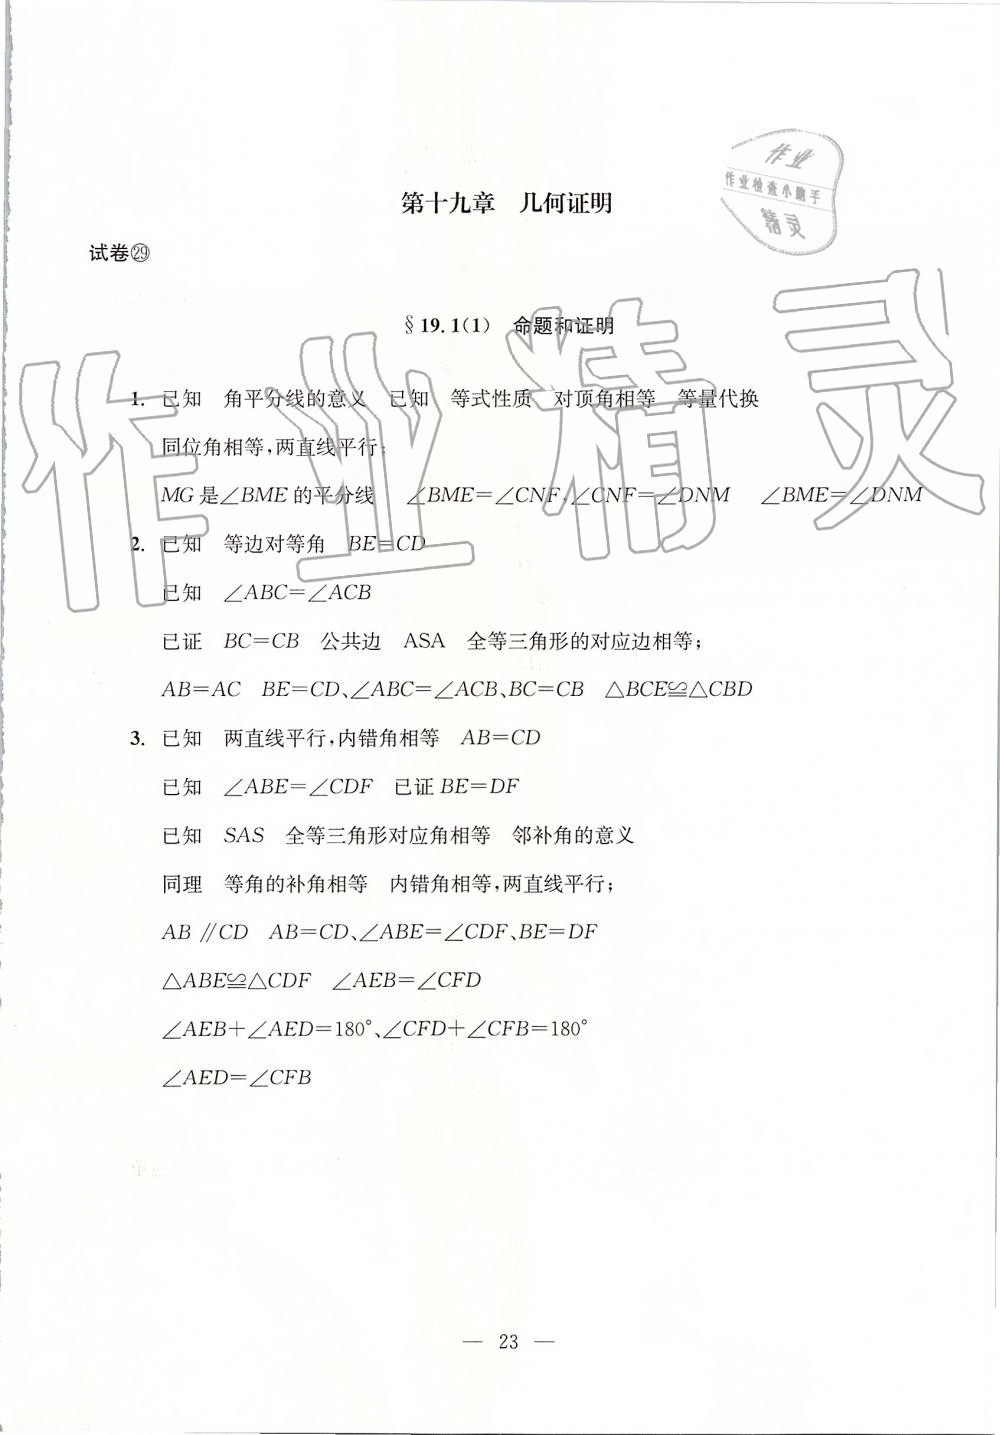 作业
作业检查小助手
精灵
第十九章　几何证明
试卷㉙
§19.1(1)　命题和证明
1. 已知　角平分线的意义　已知　等式性质　对顶角相等　等量代换
同位角相等,两直线平行;
MG是∠BME的平分线　∠BME=∠CNF,∠CNF=∠DNM　∠BME=∠DNM
2. 已知　等边对等角　BE=CD
已知　∠ABC=∠ACB
已证　BC=CB　公共边　ASA　全等三角形的对应边相等;
AB=AC　BE=CD、∠ABC=∠ACB、BC=CB　△BCE≌△CBD
3. 已知　两直线平行,内错角相等　AB=CD
已知　∠ABE=∠CDF　已证 BE=DF
已知　SAS　全等三角形对应角相等　邻补角的意义
同理　等角的补角相等　内错角相等,两直线平行;
AB∥CD　AB=CD、∠ABE=∠CDF、BE=DF
△ABE≌△CDF　∠AEB=∠CFD
∠AEB+∠AED=180°、∠CFD+∠CFB=180°
∠AED=∠CFB
作业精灵
— 23 —